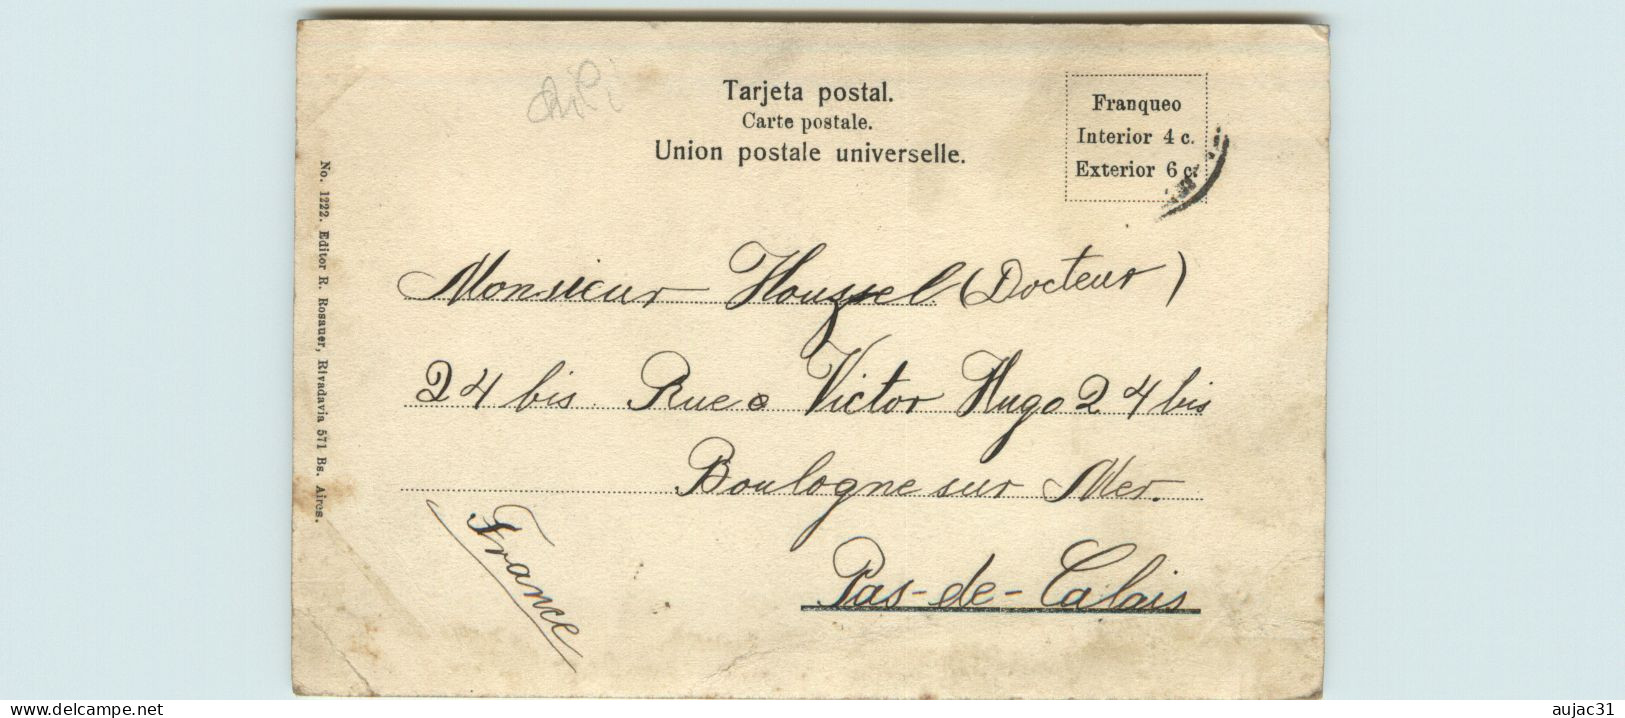 chili
Tarjeta postal.
Carte postale.
Union postale universelle.
Franqueo
Interior 4 c.
Exterior 6 c.
No. 1222. Editor R. Rosauer, Rivadavia 571 Bs. Aires.
Monsieur Houzel (Docteur)
24 bis Rue Victor Hugo 24 bis
Boulogne sur Mer.
Pas-de-Calais
France
www.delcampe.net
aujac31